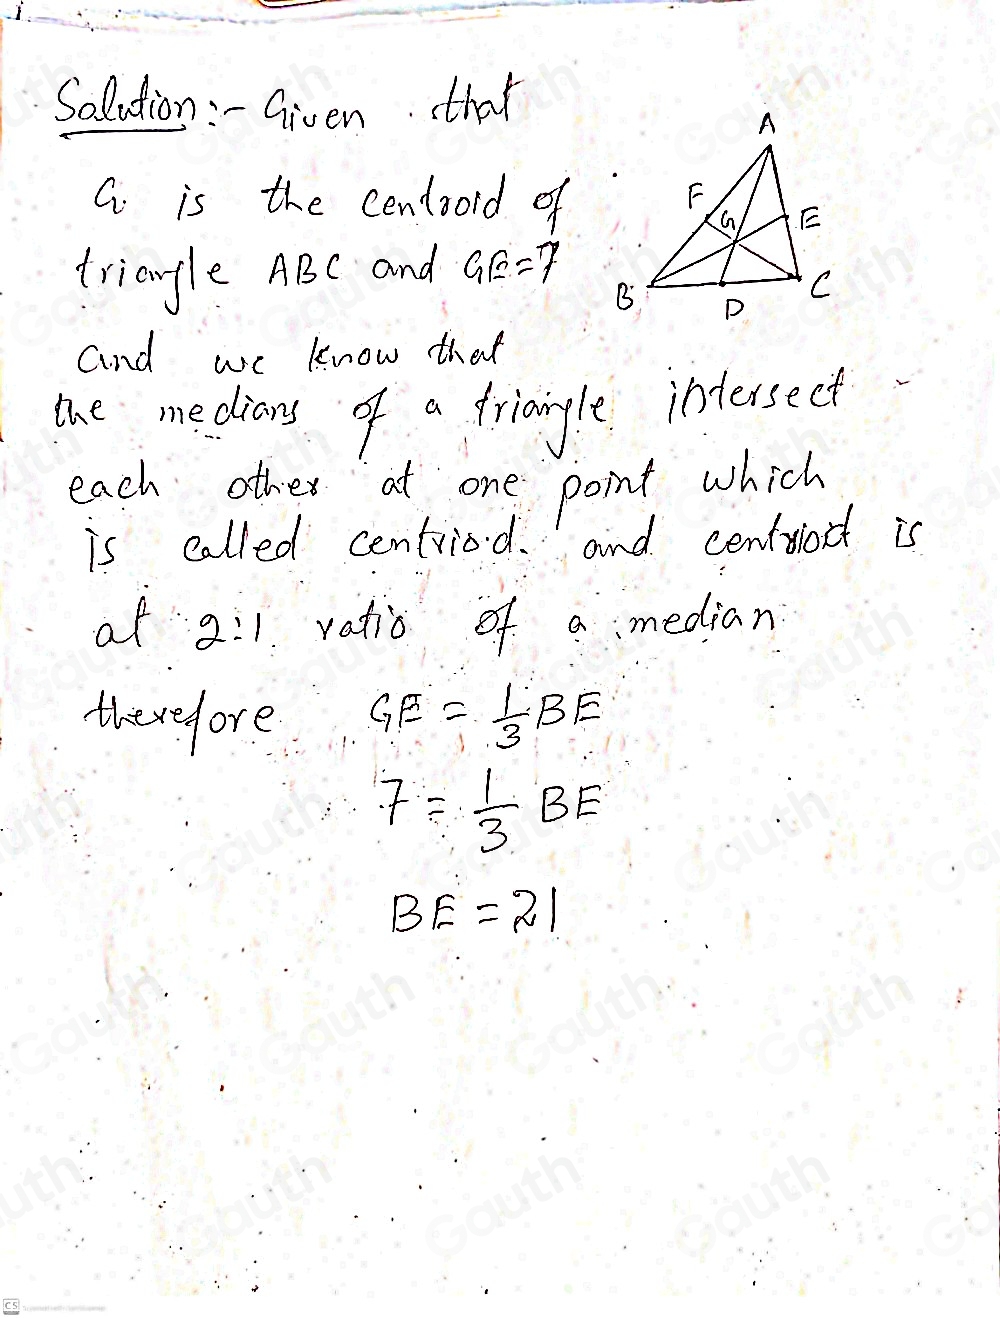 Solution:- Given that
G is the centroid of
triangle ABC and GE=7
A
F
G
E
B
D
C
and we know that
the medians of a triangle intersect
each other at one point which
is called centriod. and centriod is
at 2:1 ratio of a median
therefore GE = 1/3 BE
7 = 1/3 BE
BE = 21
Gauth
CS